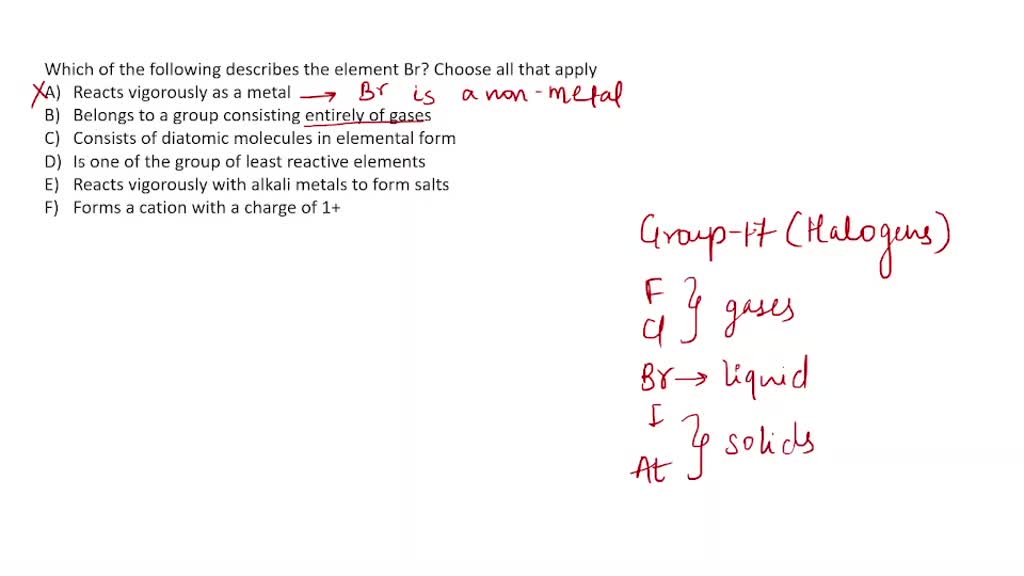 Which of the following describes the element Br? Choose all that apply
XA) Reacts vigorously as a metal → Br is a non-metal
B) Belongs to a group consisting entirely of gases
C) Consists of diatomic molecules in elemental form
D) Is one of the group of least reactive elements
E) Reacts vigorously with alkali metals to form salts
F) Forms a cation with a charge of 1+
Group-17 (Halogens)
F
Cl } gases
Br → liquid
I
At } solids